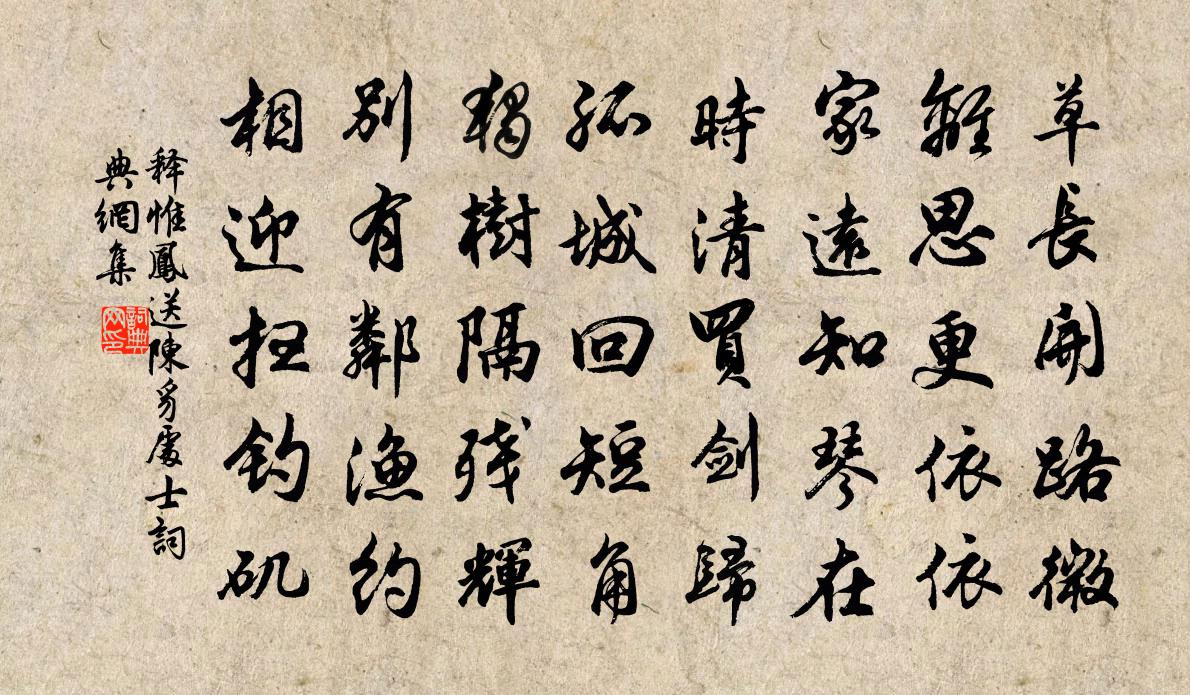 草長開路微
離思更依依
家遠知琴在
時清買劍歸
孤城回短角
獨樹隔残輝
别有鄰漁約
相迎扫釣矶
释惟鳳送陳豸處士詞
典網集
詞典
网印